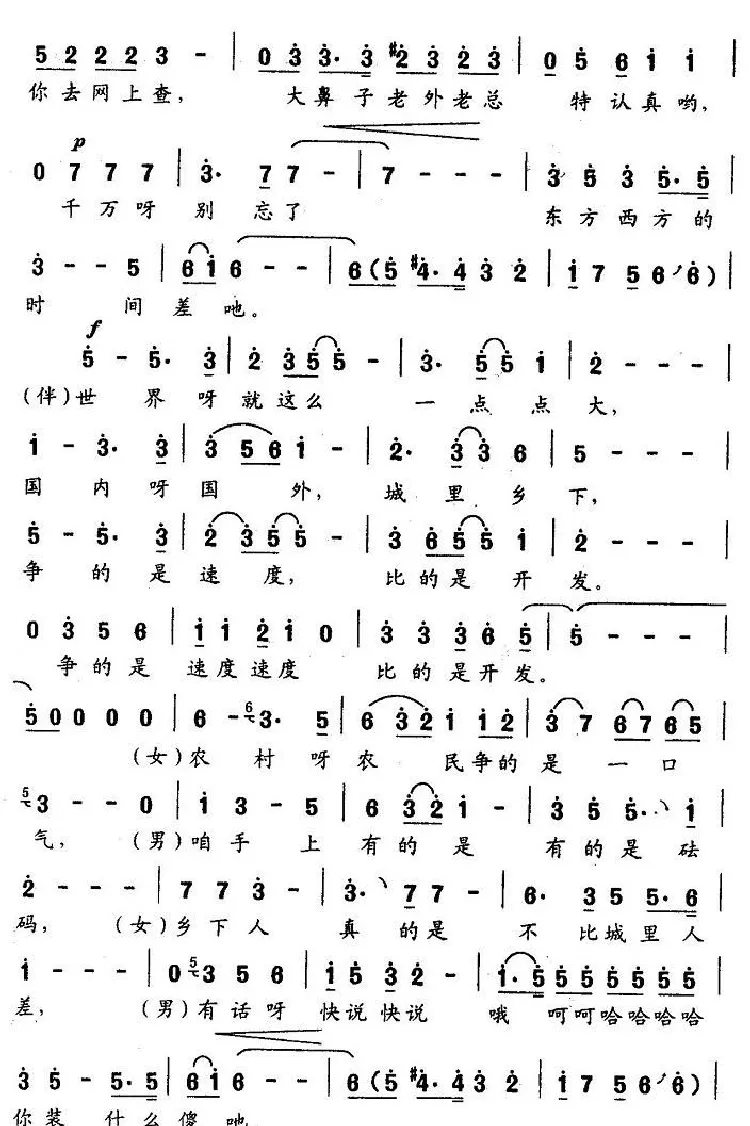 5 2 2 2 2 3 - | 0 3 3· 3 #2 3 2 3 | 0 5 6 1 1 |
你去网上查, 大鼻子老外老总 特认真哟,
p
0 7 7 7 | 3· 7 7 - - | 7 - - - | 3 5 3 5· 5
千万呀 别 忘了 东方西方的
3 - - 5 | 6 1 6 - - | 6 (5 #4· 4 3 2 | 1 7 5 6 6) |
时 间 差吔。
f
5 - 5· 3 | 2 3 5 5 - | 3· 5 5 1 | 2 - - - |
(伴)世 界 呀就这么 一 点 点 大,
1 - 3· 3 | 3 5 6 1 - | 2· 3 3 6 | 5 - - - |
国 内 呀国 外, 城 里 乡 下,
5 - 5· 3 | 2 3 5 5 - | 3 6 5 5 1 | 2 - - - |
争 的 是 速 度, 比 的 是 开 发。
0 3 5 6 | 1 1 2 1 0 | 3 3 3 6 5 | 5 - - - |
争的是 速度速度 比的是开发。
5 0 0 0 0 | 6 - 6 3· 5 | 6 3 2 1 1 2 | 3 7 6 7 6 5 |
(女)农 村 呀农 民争的 是 一 口
5 3 - - 0 | 1 3 - 5 | 6 3 2 1 - | 3 5 5· 1 |
气, (男)咱手 上 有 的 是 有 的 是 砝
2 - - - | 7 7 3 - | 3· 7 7 - | 6· 3 5 5· 6 |
码, (女)乡 下 人 真 的 是 不 比城里人
1 - - - | 0 5 3 5 6 | 1 5 3 2 - | 1· 5 5 5 5 5 5 5 |
差, (男)有话呀 快说快说 哦 呵呵哈哈哈哈
3 5 - 5· 5 | 6 1 6 - - | 6 (5 #4· 4 3 2 | 1 7 5 6 6) |
你装 什么傻吔。